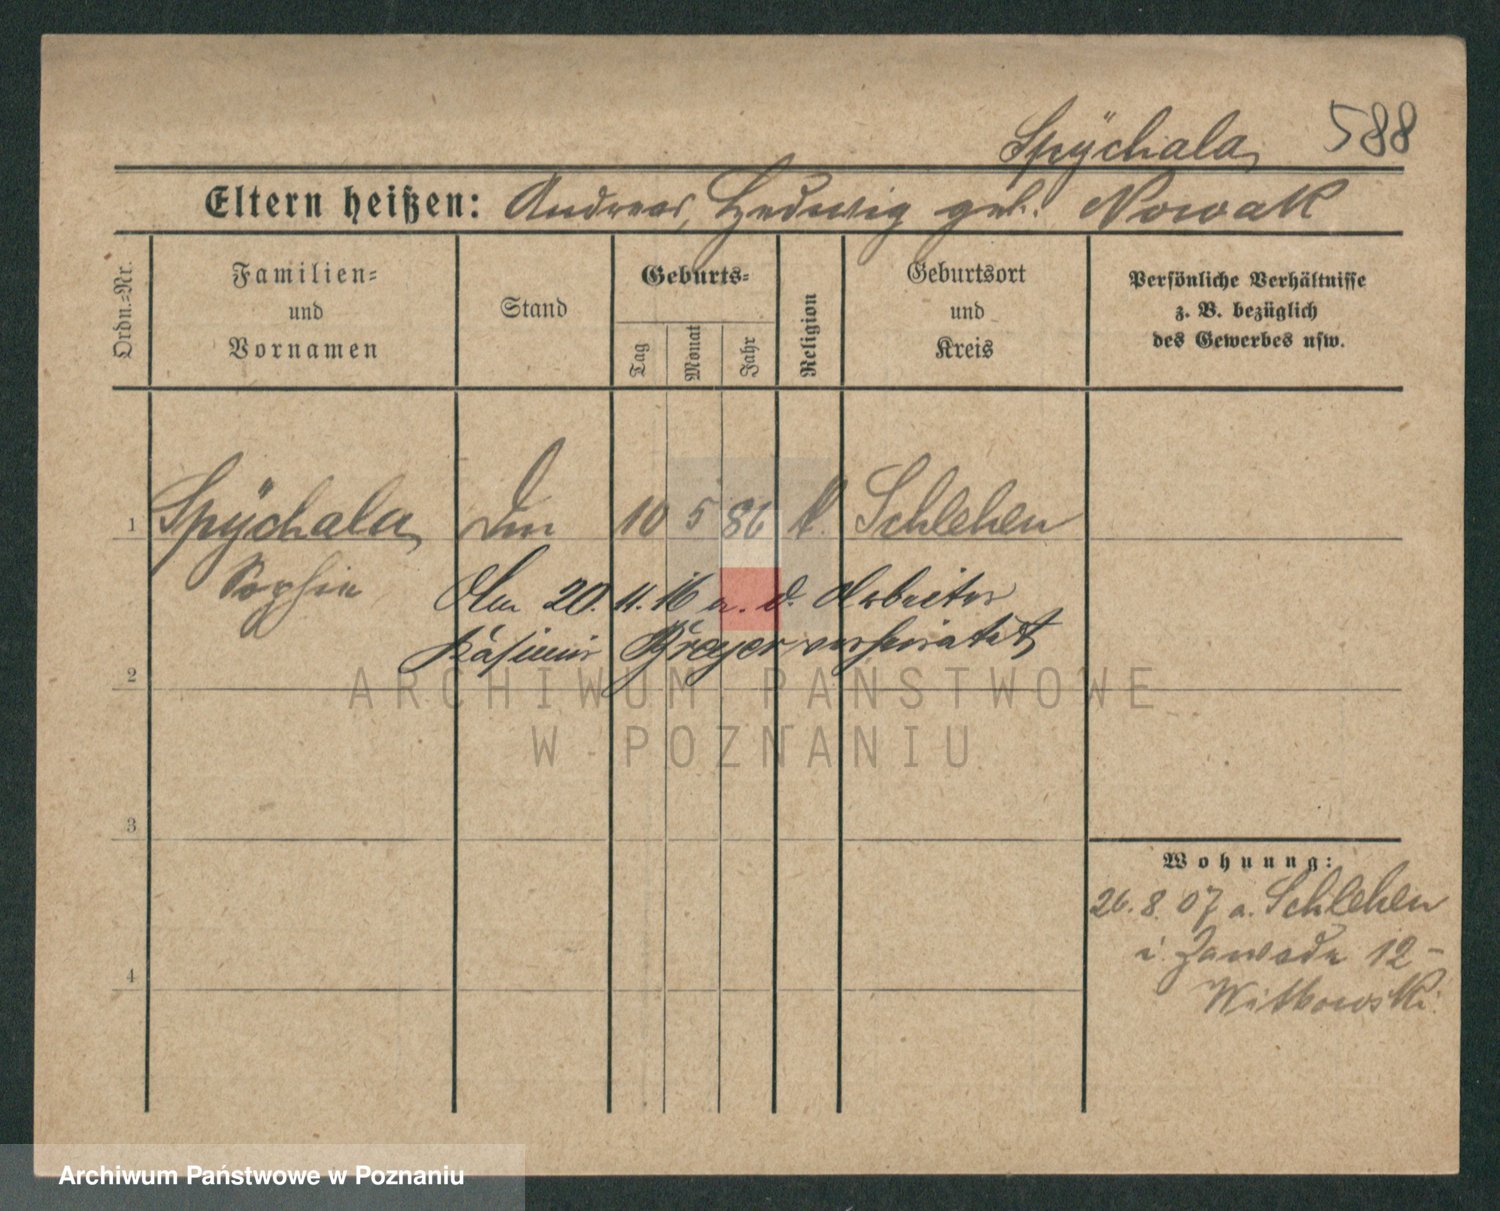 Spÿchala 588
Eltern heißen: Andreas, Hedwig geb. Nowak
Ordn.=Nr.
Familien=
und
Vornamen
Stand
Geburts=
Tag
Monat
Jahr
Religion
Geburtsort
und
Kreis
Persönliche Verhältnisse
z. B. bezüglich
des Gewerbes usw.
1 Spÿchala 10 5 86 k. Schlehen
Sophie
Am 20. 11. 16 m. d. Arbeiter
Kasimir verheiratet
2
ARCHIWUM PAŃSTWOWE
W POZNANIU
3
Wohnung:
26. 8. 07 a. Schlehen
i. Zawade 12 -
4
Witkowski.
Archiwum Państwowe w Poznaniu